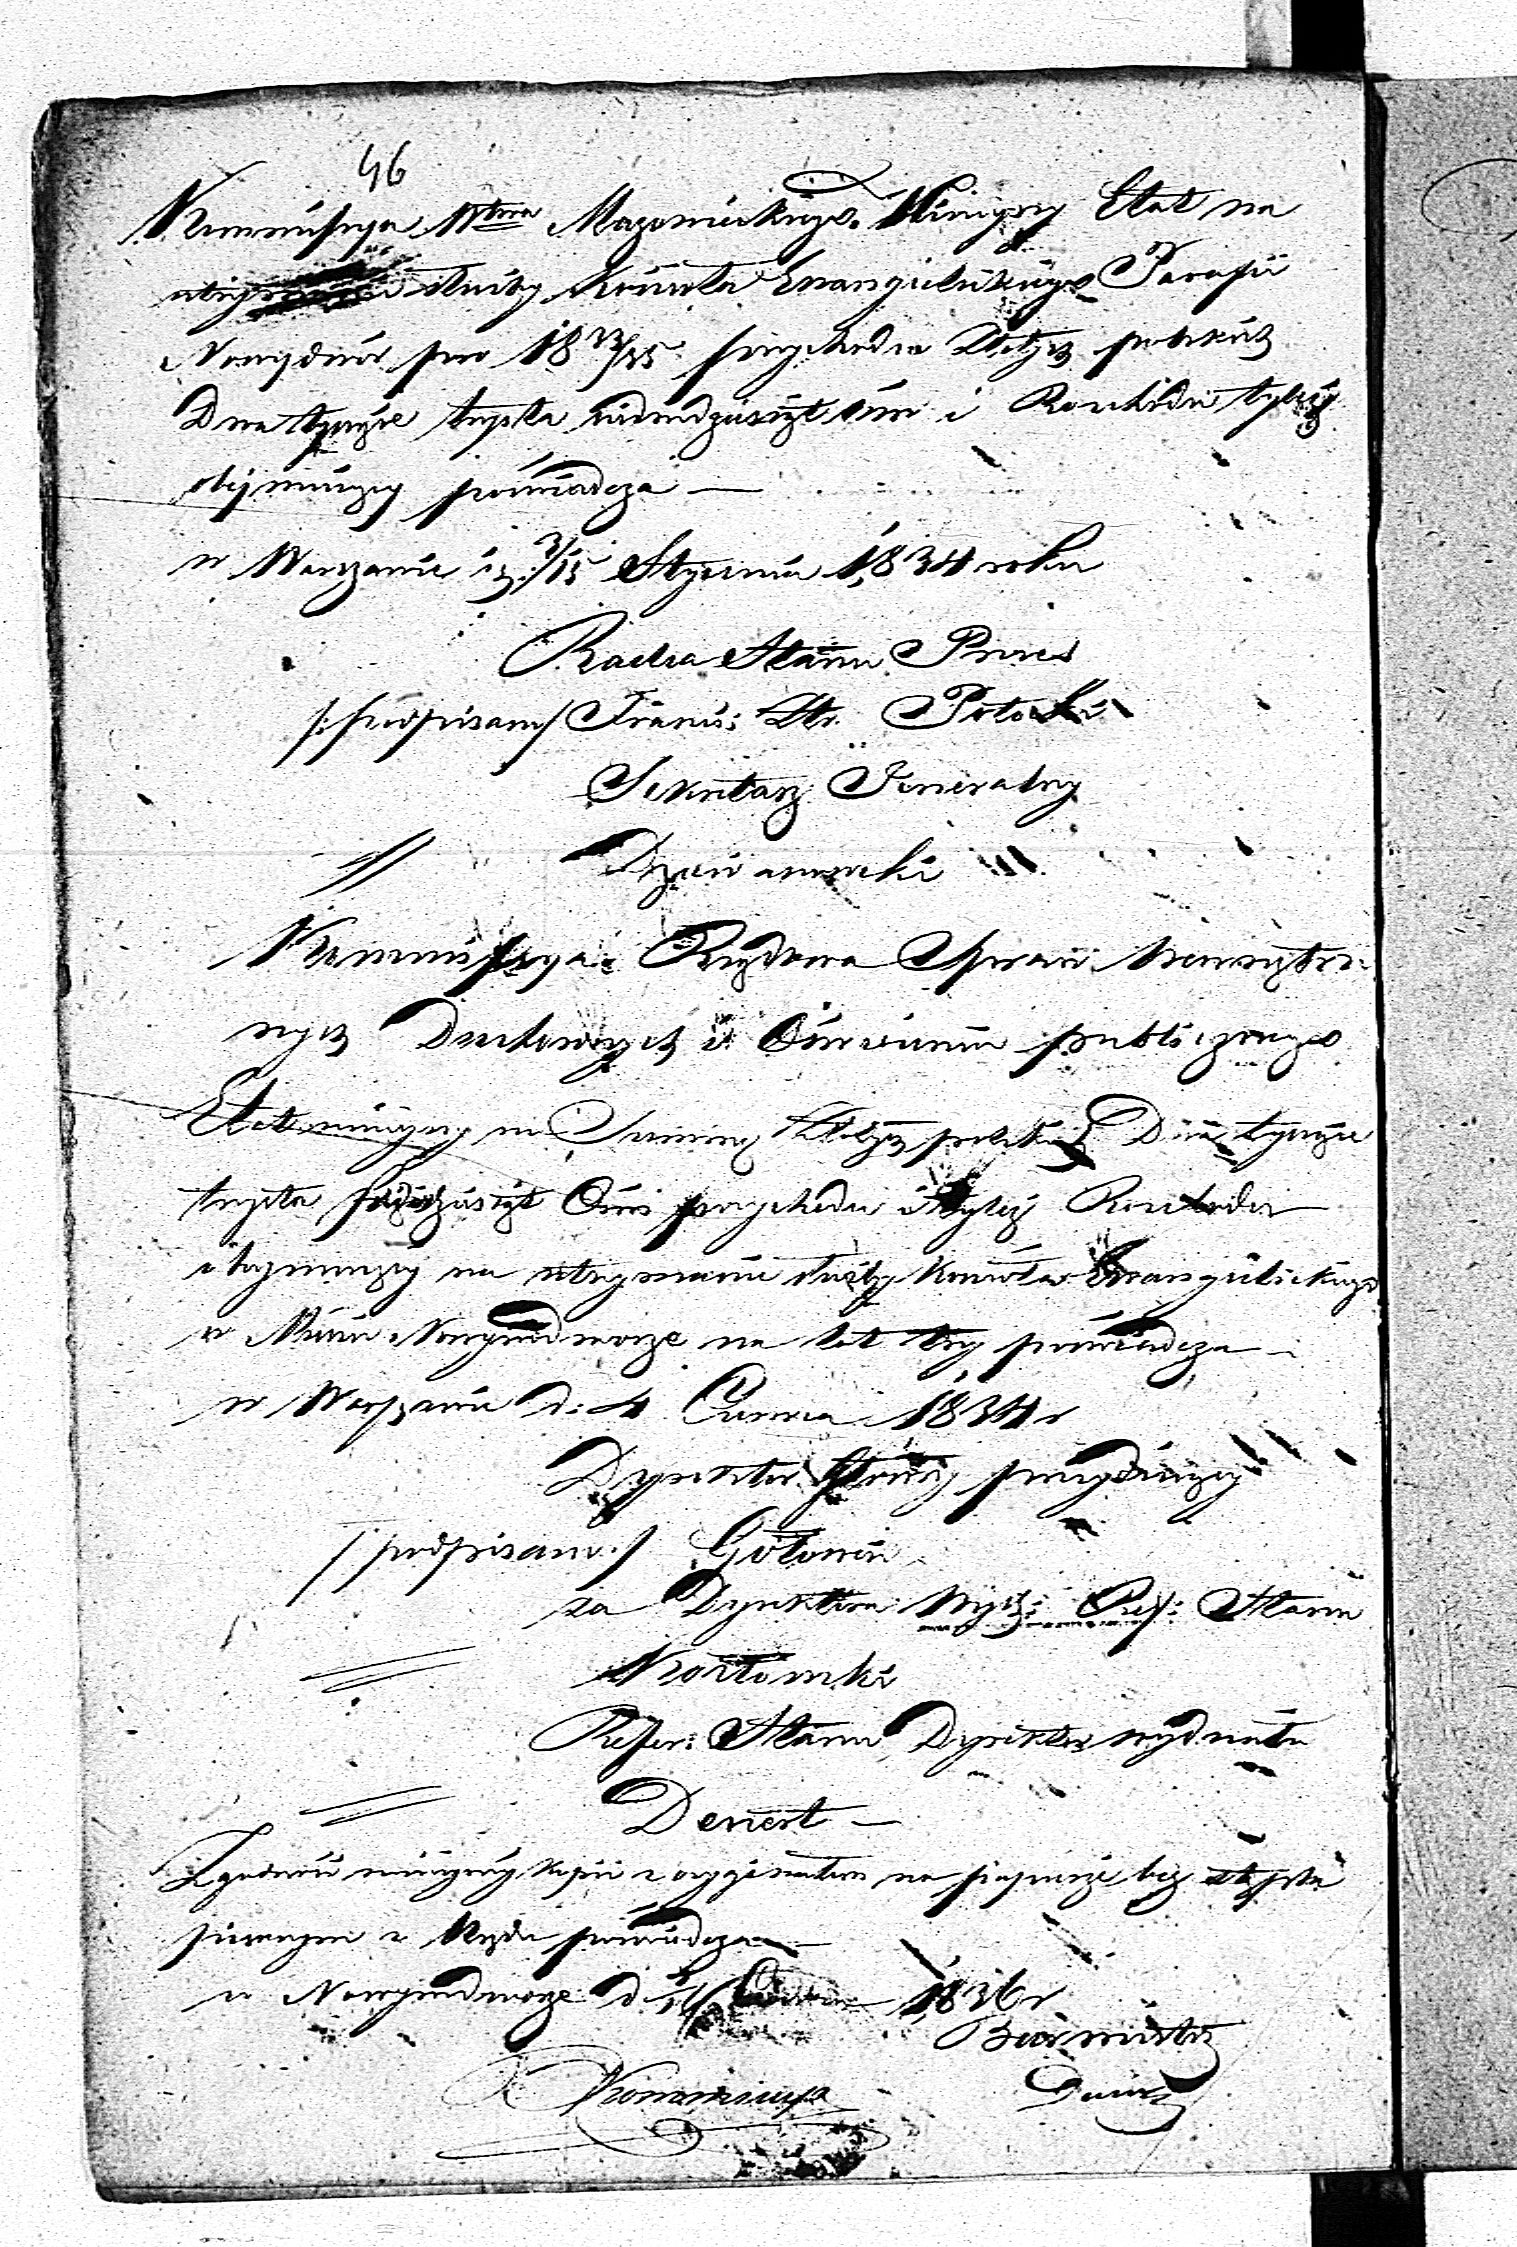 46
Kommissya Wtwa Mazowieckiego Niniejszy Etat na
utrzymanie służby Kościoła Ewangelickiego Parafii
Nowydwór pro 18 33/35 przychodu Złotych polskich
Dwa tysiące trzysta siedmdziesiąt ośm i Rozchodu tyleż
obejmujący poświadcza —
w Warszawie d. 3/15 Stycznia 1834 roku
Radca Stanu Prezes
/: podpisany / Franci: Hr. Potocki
Sekretarz Jeneralny
Kommissya Rządowa Spraw Wewnętrz:
nych Duchownych i Oświecenia publicznego
Etat niniejszy na Summę Złotych polskich Dwa tysiące
trzysta Ośm przychodu i tyleż Rozchodu
obejmujący na utrzymanie służby Kościoła Ewangelickiego
w Mieście Nowymdworze na lat trzy poświadcza —
w Warszawie d: 4 Czerwca 1834 r
Dyrektor Główny prezydujący
/ podpisano / Gołowin
za Dyrektora Wydz: Ref: Stanu
Kozłowski
Refer: Stanu Dyrektor wydziału
Denert —
Zgodność niniejszej kopii z oryginałem na papierze bez stępla
pisanym z Urzędu poświadcza —
w Nowymdworze d. 1836 r
Burmistrz